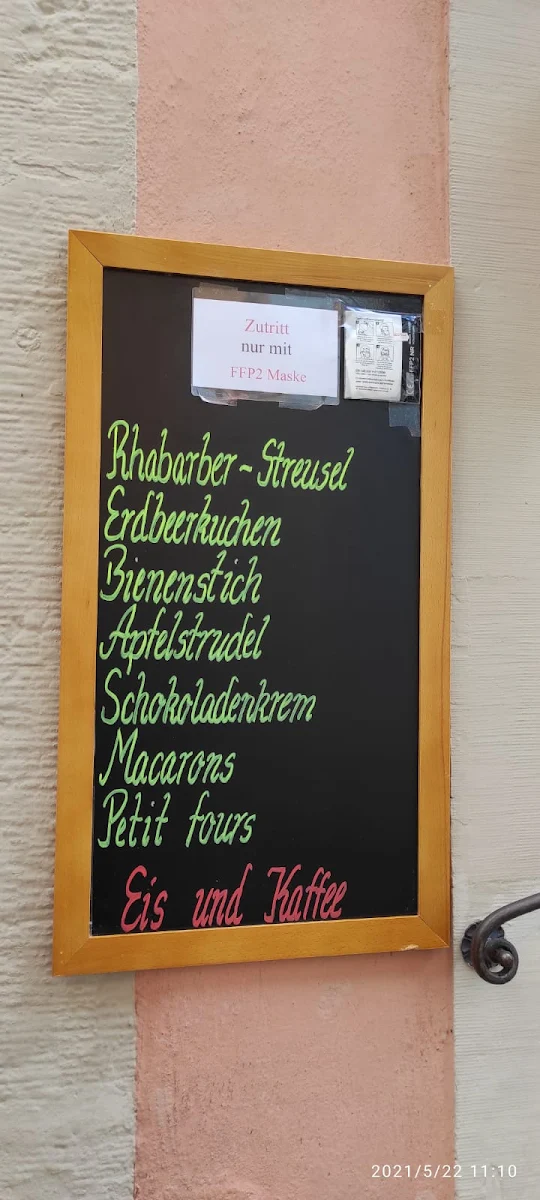 Zutritt
nur mit
FFP2 Maske
FFP2 NR
Rhabarber-Streusel
Erdbeerkuchen
Bienenstich
Apfelstrudel
Schokoladenkrem
Macarons
Petit fours
Eis und Kaffee
2021/5/22 11:10